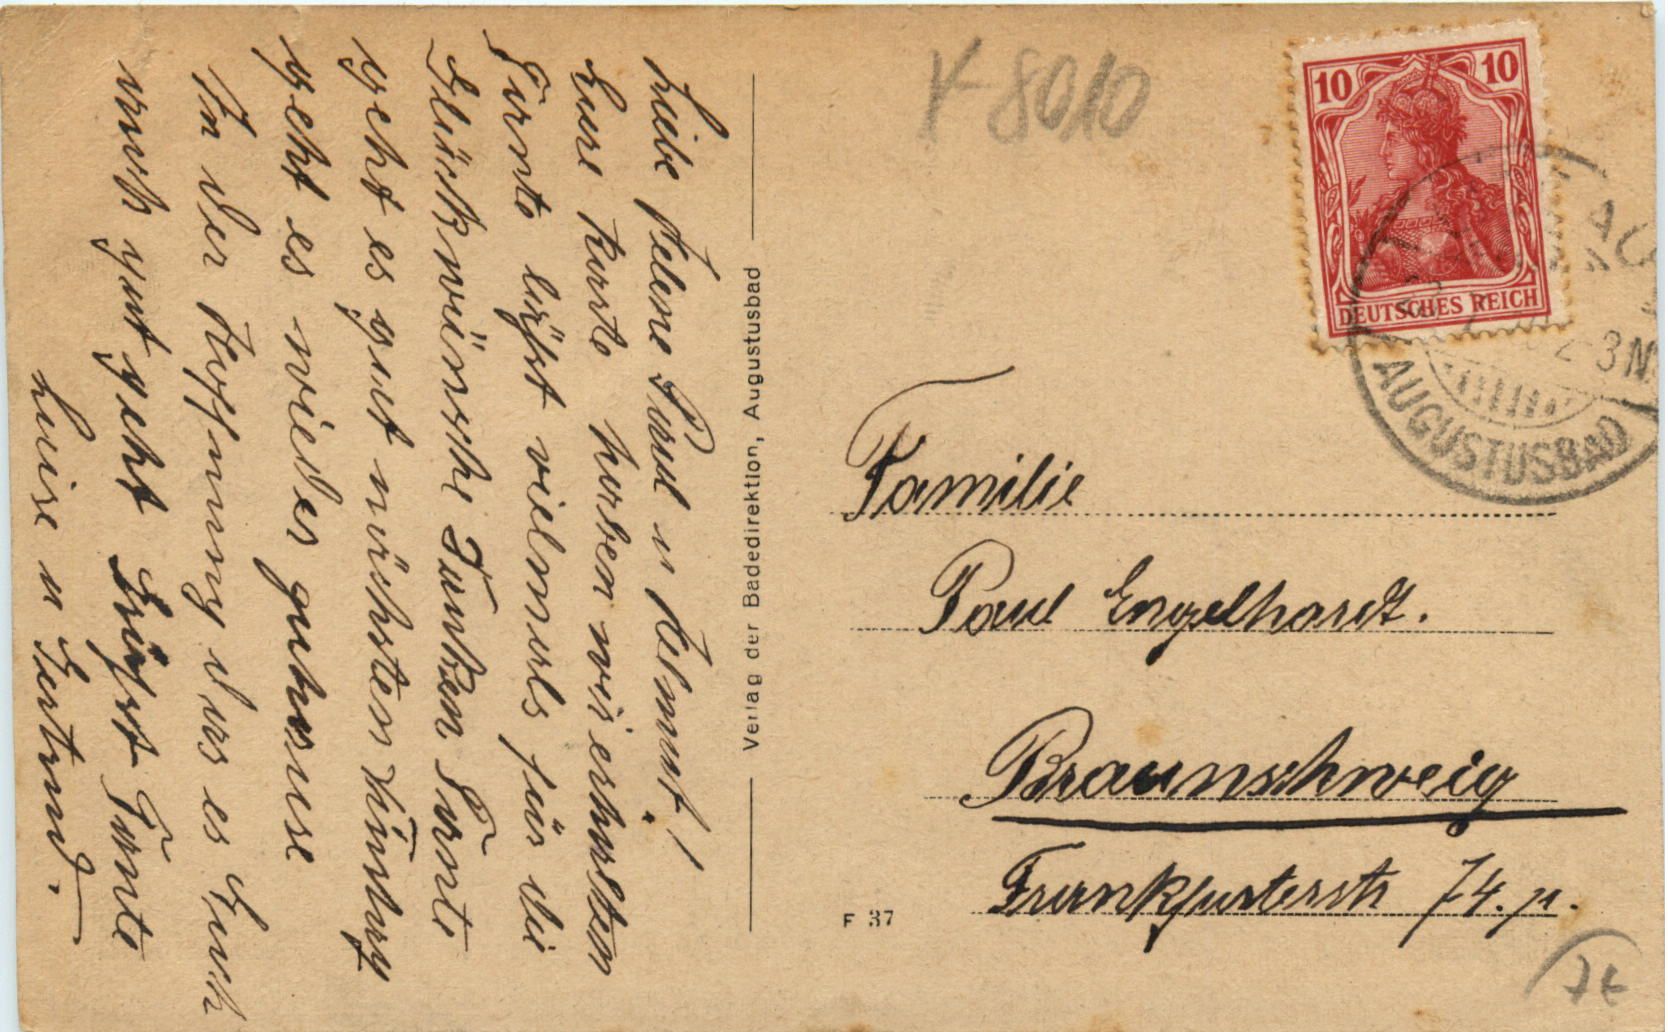 Liebe Helene Paul u Helmut!
Eure Karte haben wir erhalten
Tante läßt vielmals für die
Glückwünsche danken Tante
geht es gut nächsten Dinstag
geht es wieder zuhause
In der Hoffnung das es Euch
noch gut geht Grüßt Tante
Luise u Gertrud.
Verlag der Badedirektion, Augustusbad
K 8010
10 10
DEUTSCHES REICH
2-3N
AUGUSTUSBAD
Familie
Paul Engelhardt.
Braunschweig
Frankfurterstr 74. p.
F 37